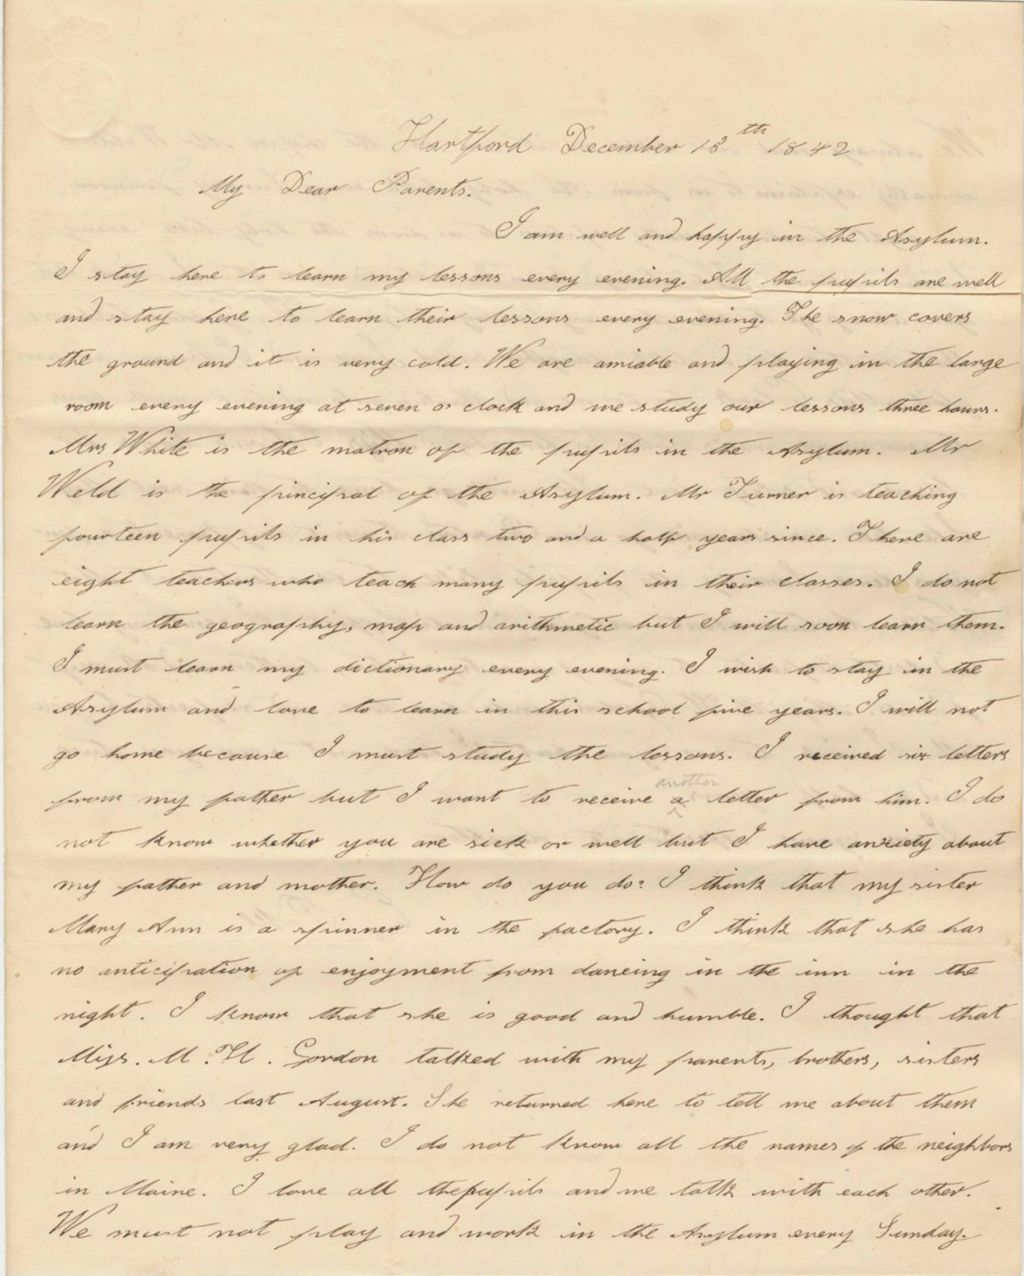 Hartford December 18th 1842
My Dear Parents.
I am well and happy in the Asylum.
I stay here to learn my lessons every evening. All the pupils are well
and stay here to learn their lessons every evening. The snow covers
the ground and it is very cold. We are amiable and playing in the large
room every evening at seven o' clock and we study our lessons three hours.
Mrs White is the matron of the pupils in the Asylum. Mr
Weld is the principal of the Asylum. Mr Turner is teaching
fourteen pupils in his class two and a half years since. There are
eight teachers who teach many pupils in their classes. I do not
learn the geography, map and arithmetic but I will soon learn them.
I must learn my dictionary every evening. I wish to stay in the
Asylum and love to learn in this school five years. I will not
go home because I must study the lessons. I received six letters
from my father but I want to receive a another letter from him. I do
not know whether you are sick or well but I have anxiety about
my father and mother. How do you do? I think that my sister
Mary Ann is a spinner in the factory. I think that she has
no anticipation of enjoyment from dancing in the inn in the
night. I know that she is good and humble. I thought that
Miss. M. H. Gordon talked with my parents, brothers, sisters
and friends last August. She returned here to tell me about them
and I am very glad. I do not know all the names of the neighbors
in Maine. I love all the pupils and we talk with each other.
We must not play and work in the Asylum every Sunday.